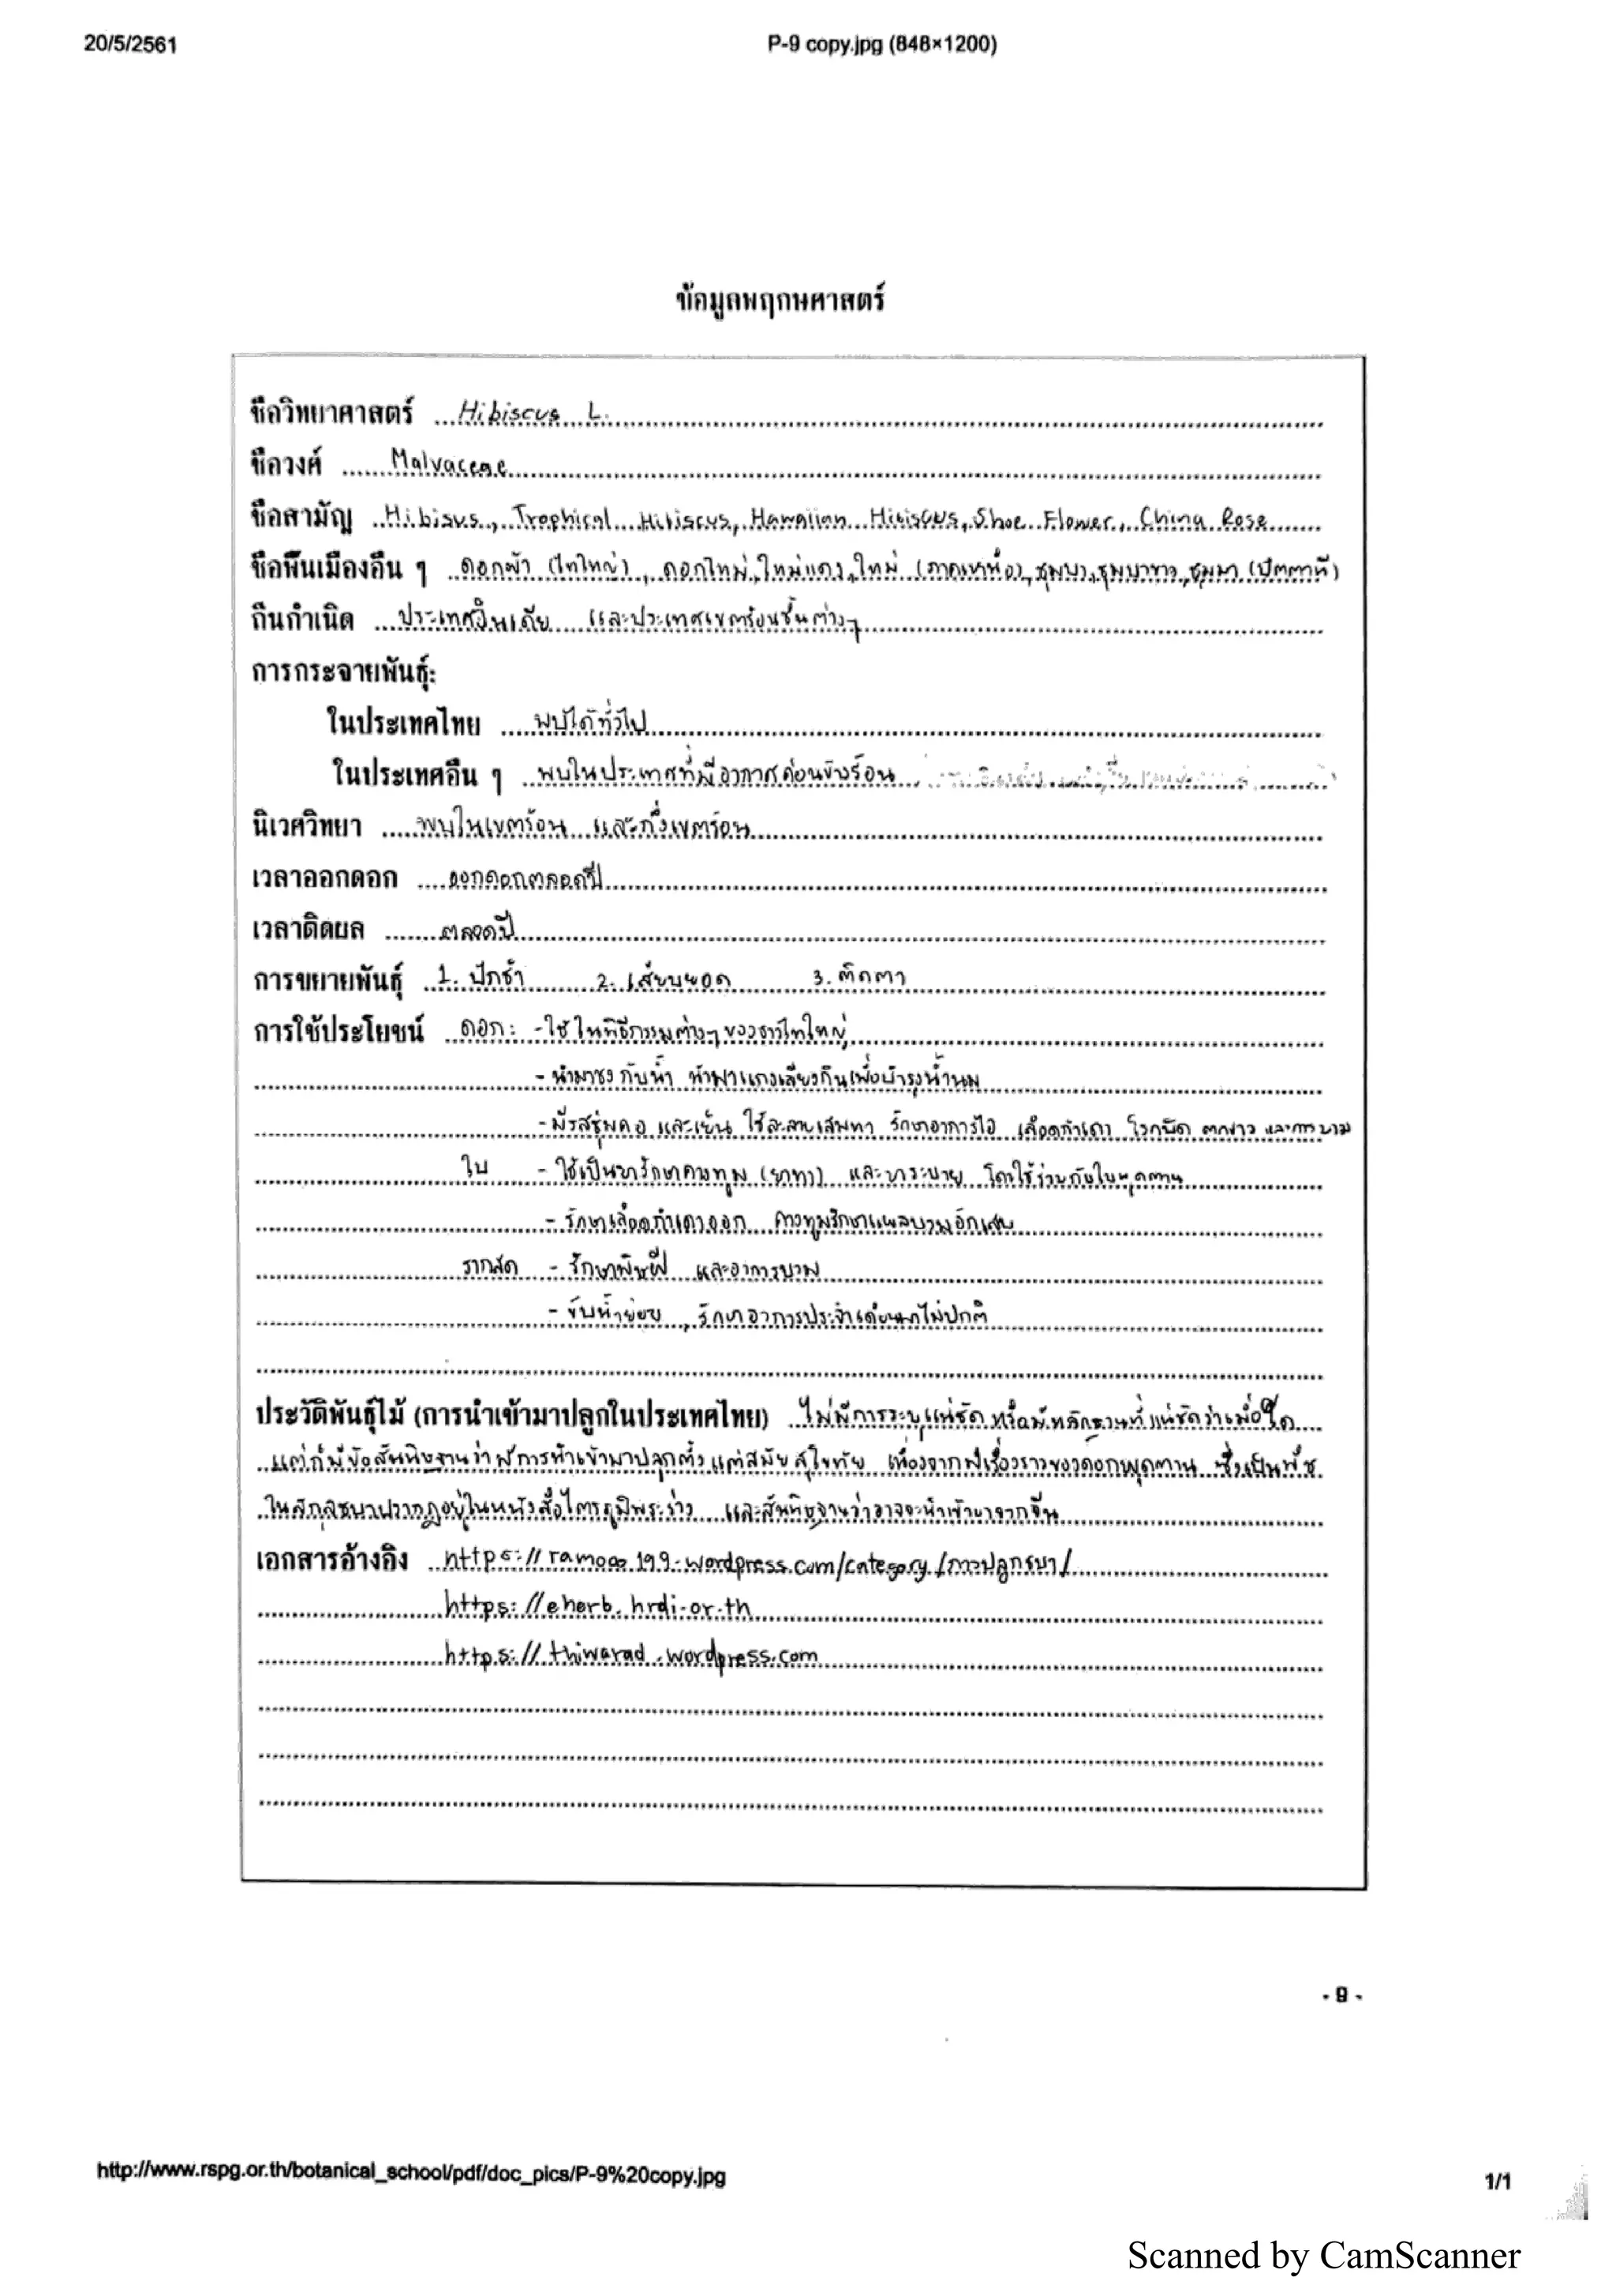 20/5/2561
P-9 copy.jpg (848×1200)
ข้อมูลพฤกษศาสตร์
ชื่อวิทยาศาสตร์ Hibiscus L.
ชื่อวงศ์ Malvaceae
ชื่อสามัญ Hibisus, Trophical Hibiscus, Hawaiian Hibiscus, Shoe Flower, China Rose
ชื่อพื้นเมืองอื่น ๆ ดอกผ้า (ไทใหญ่), ดอกใหม่, ใหม่แดง, ใหม่ (ภาคเหนือ), ชุมบา, ชุมบาขาว, ชุมบา (ปัตตานี)
ถิ่นกำเนิด ประเทศอินเดีย และประเทศเขตร้อนชื้นต่างๆ
การกระจายพันธุ์:
ในประเทศไทย พบได้ทั่วไป
ในประเทศอื่น ๆ พบในประเทศที่มีอากาศค่อนข้างร้อน
นิเวศวิทยา พบในเขตร้อน และกึ่งเขตร้อน
เวลาออกดอก ออกดอกตลอดปี
เวลาติดผล ตลอดปี
การขยายพันธุ์ 1. ปักชำ 2. เสียบยอด 3. ติดตา
การใช้ประโยชน์ ดอก: - ใช้ในพิธีกรรมต่างๆ ของชาวไทใหญ่
- นำมาชงกับน้ำ ทำแกงเลียงกินเพื่อบำรุงน้ำนม
- มีรสชุ่มคอ และเย็น ใช้ละลายเสมหะ รักษาอาการไอ เลือดกำเดา โรคบิด ตกขาว และการบวม
ใบ - ใช้เป็นยารักษาคางทูม (ยาทา) และยาระบาย โดยใช้ร่วมกับใบพุดตาน
- รักษาเลือดกำเดาออก คางทูมรักษาแผลบวมอักเสบ
รากสด - รักษาพิษฝี และอาการบวม
- ขับน้ำย่อย, รักษาอาการประจำเดือนมาไม่ปกติ
ประวัติพันธุ์ไม้ (การนำเข้ามาปลูกในประเทศไทย) ไม่มีการระบุแน่ชัด หรือมีหลักฐานที่แน่ชัดว่าเมื่อใด
แต่ก็มีข้อสันนิษฐานว่ามีการนำเข้ามาปลูกตั้งแต่สมัยสุโขทัย เนื่องจากมีเรื่องราวของดอกพุดตาน ซึ่งเป็นพืช
ในสกุลชบาปรากฏอยู่ในหนังสือไตรภูมิพระร่วง และสันนิษฐานว่าอาจจะนำเข้ามาจากจีน
เอกสารอ้างอิง https://ramoo199.wordpress.com/category/การปลูกชบา/
https://eherb.hrdi.or.th
https://thiwarad.wordpress.com
- 9 -
http://www.rspg.or.th/botanical_school/pdf/doc_pics/P-9%20copy.jpg
1/1
Scanned by CamScanner